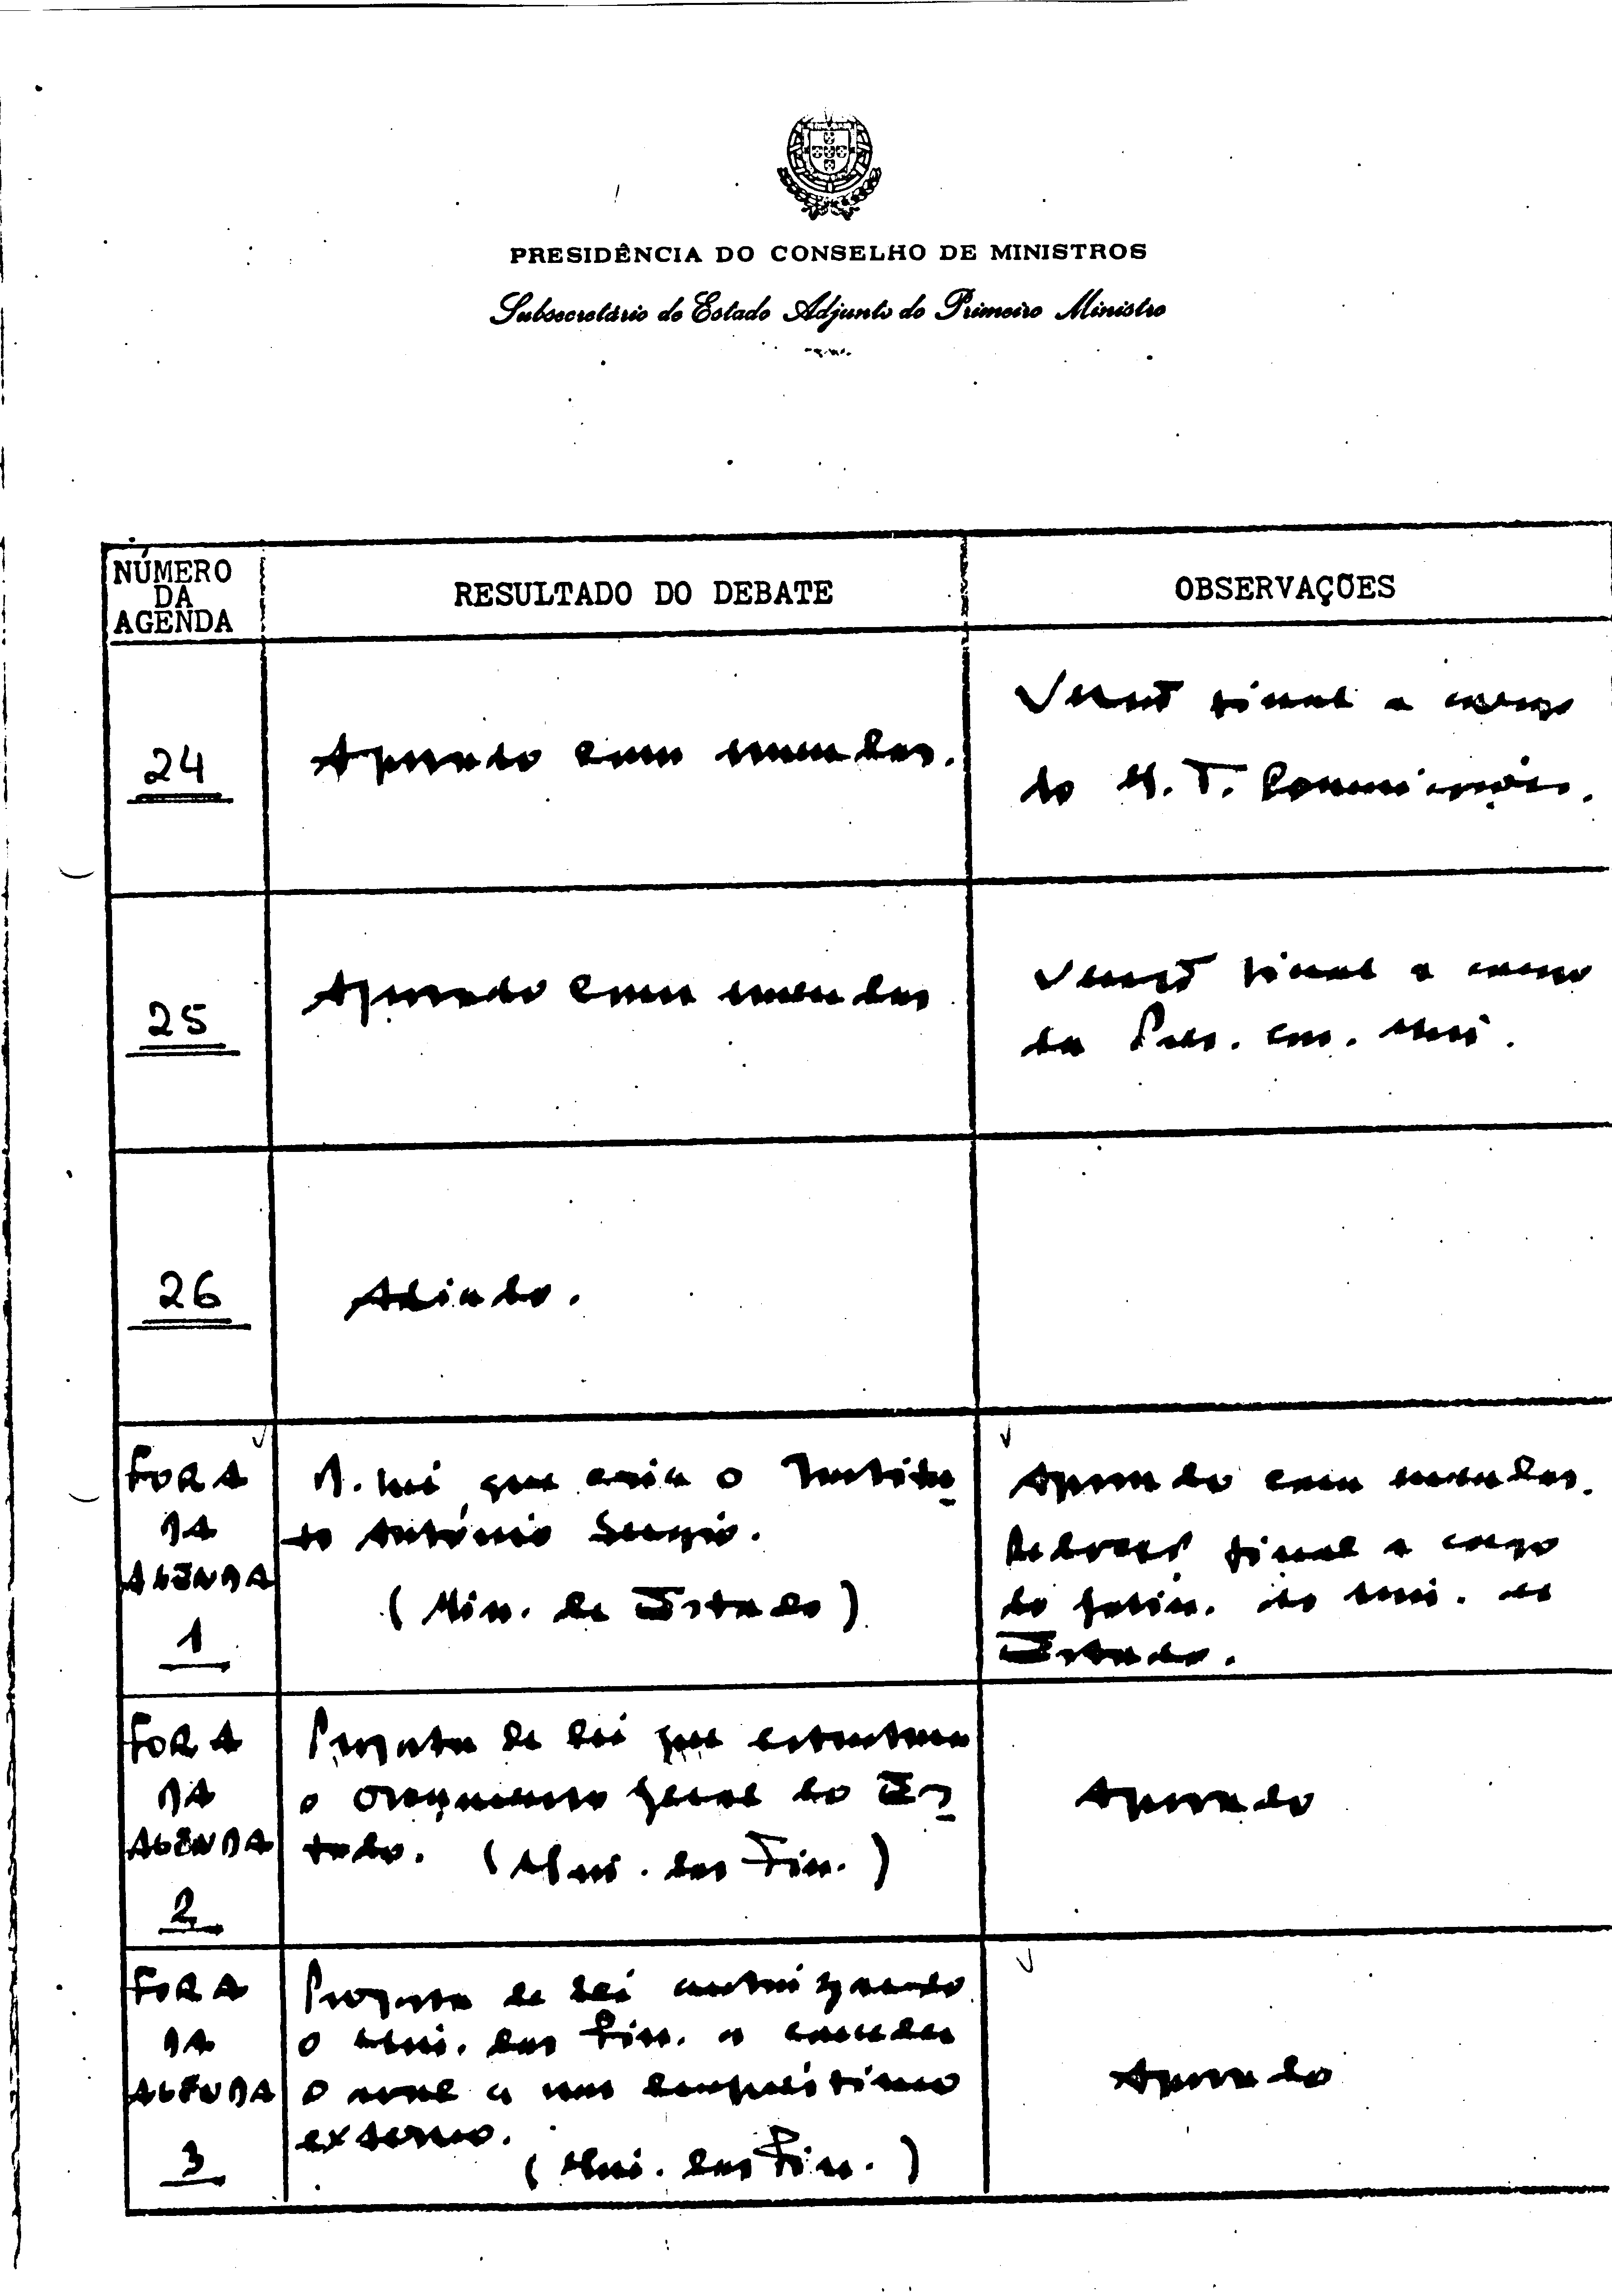 PRESIDÊNCIA DO CONSELHO DE MINISTROS
Subsecretário de Estado Adjunto do Primeiro Ministro
NÚMERO
DA
AGENDA
RESULTADO DO DEBATE
OBSERVAÇÕES
24
Aprovado com emendas.
Versão final a cargo
do M. T. Comunicações.
25
Aprovado com emendas
Versão final a cargo
da Pres. Con. Min.
26
Adiado.
FORA
DA
AGENDA
1
D. Lei que cria o Institu
to António Sérgio.
(Min. de Estado)
Aprovado com emendas.
Redacção final a cargo
do Gabin. do Min. de
Estado.
FORA
DA
AGENDA
2
Proposta de lei que estrutura
o orçamento geral do Es
tado. (Min. das Fin.)
Aprovado
FORA
DA
AGENDA
3
Proposta de lei autorizando
o Min. das Fin. a conceder
o aval a um empréstimo
externo.
(Min. das Fin.)
Aprovado